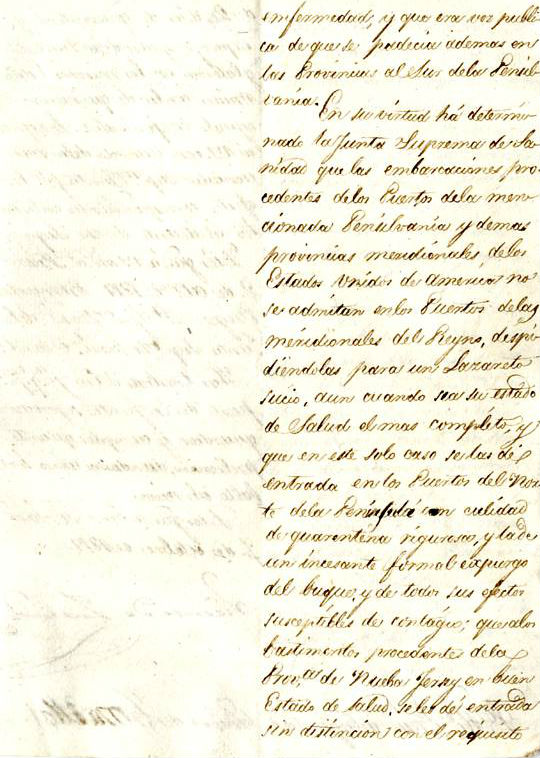 enfermedad, y que era voz publi
ca de que se padecia ademas en
las Provincias al Sur de la Pensil
vania.
En su virtud há determi
nado la Junta Suprema de Sa
nidad que las embarcaciones pro
cedentes de los Puertos de la men
cionada Pensilvania y demas
provincias meridionales de los
Estados Unidos de America no
se admitan en los Puertos de las
meridionales del Reyno, despi
diéndolas para un Lazareto
sucio, aun cuando sea su estado
de Salud el mas completo, y
que en este solo caso se las dé
entrada en los Puertos del Nor
te de la Peninsula con calidad
de quarentena rigurosa, y la de
un incesante formal expurgo
del buque, y de todos sus efectos
susceptibles de contagio; que a los
bastimentos procedentes de la
Prov.cia de Nueba Jersey en buen
Estado de Salud, se les dé entrada
sin distincion con el requisito